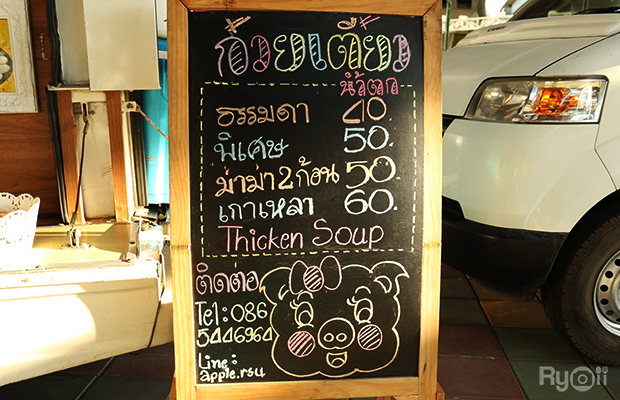 ก๋วยเตี๋ยว
น้ำตก
ธรรมดา 40.
พิเศษ 50.
ม่าม่า 2 ก้อน 50.
เกาเหลา 60.
Thicken Soup
ติดต่อ
Tel: 086
5446964
Line:
apple.rsu
Ryoii